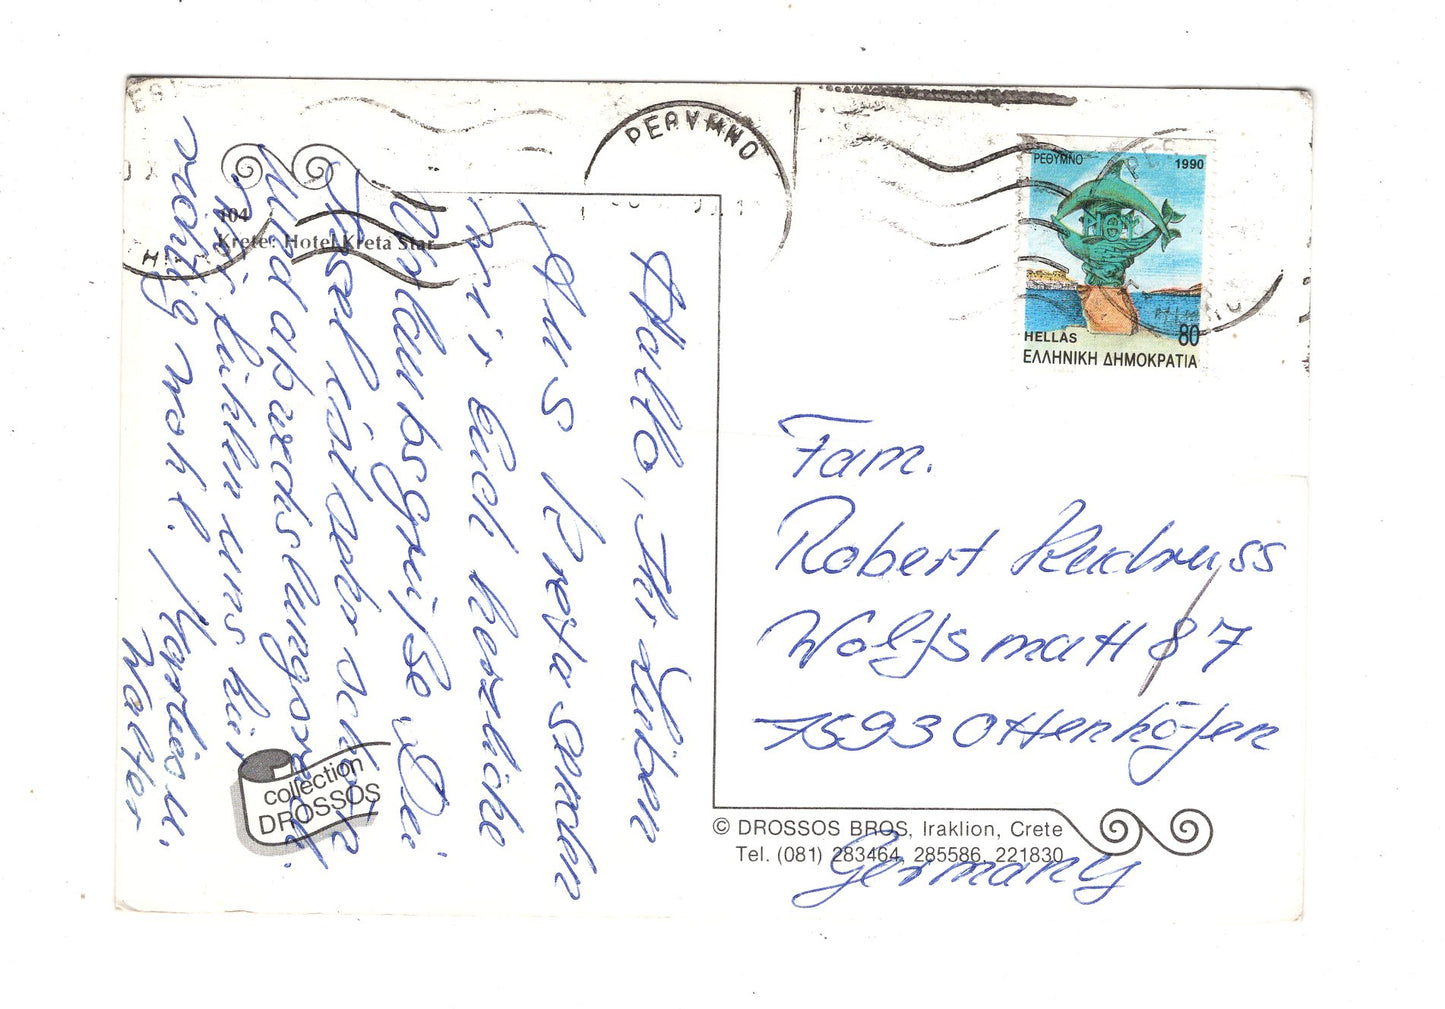 ΡΕΘΥΜΝΟ
ΡΕΘΥΜΝΟ 1990
HELLAS 80
ΕΛΛΗΝΙΚΗ ΔΗΜΟΚΡΑΤΙΑ
104
Krete: Hotel Kreta Star
Hallo, Ihr Lieben
Aus Kreta senden
wir Euch herzliche
Urlaubsgrüße. Die
Insel ist sehr schön
und abwechslungsreich.
Wir fühlen uns hier
richtig wohl.
Walter
Fam.
Robert
Wolfsmatt 7
7593 Ottenhöfen
Germany
collection
DROSSOS
© DROSSOS BROS, Iraklion, Crete
Tel. (081) 283464, 285586, 221830